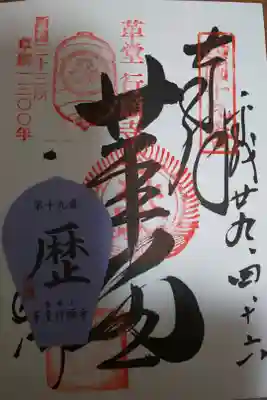 平成廿九・四・十六
奉拝
革堂
革堂 行願寺
西国三十三所
草創一三〇〇年
第十九番
歴
革堂行願寺